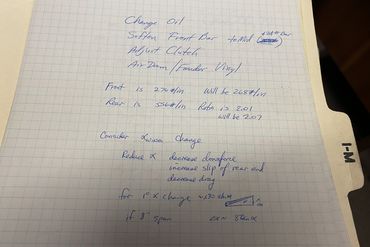 Change Oil
Soften Front Bar to Mid
Adjust Clutch
Air Dam / Fender Vinyl
Front is #/in Will be 268#/in
Rear is #/in Ratio is 2.01
will be 2.07
Consider change
Reduce α decrease downforce
increase slip of rear end
decrease drag
for 1° α change
if 8" span
I-M